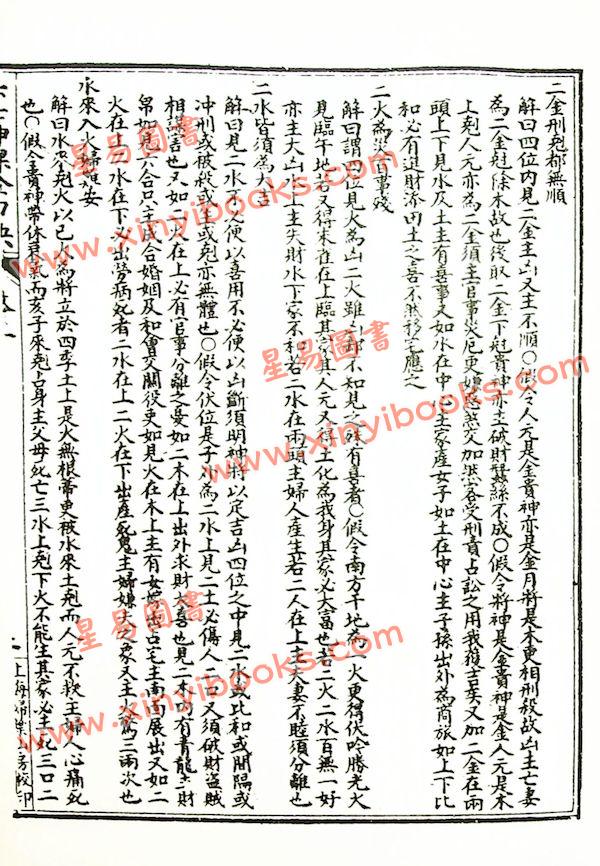 二金刑剋都無順
解曰四位内見二金主凶又主不順〇假令人元是金貴神亦是金月將是木更相刑殺故凶主亡妻
為二金剋除木故也後取二金下剋貴神亦主破財蠶絲不成〇假令將神是金貴神是金人元是木
上剋人元亦為二金須主官事災厄更
客受刑責占訟之用我獲吉矣又加二金在兩
頭上下見水及土主有喜事又如水在中心主家産女子如土在中心主子孫出外為商旅如上下比
和必有進財添田土之喜不然移宅應之
二火為災百事殘
解曰謂四位見火為凶二火雖凶
不知見之殊有喜者〇假令南方午地為一火更得伏吟勝光火
見臨午地若又得朱雀在上臨其
其人元又得土化為我身其家必大富也若二火二水百無一好
亦主大凶
主失財水下家不和若二水在兩頭主婦人産生若二人在上主夫妻不睦須分離也
二水皆須為大吉
解曰見二水不
便以善用不必便以凶斷須明神將以定吉凶四位之中見二水或比和或間隔或
冲刑或被
亦無體也〇假令伏位是子
為二水上見二土必傷人
口又須破財盜賊
相
吉也又如
火在上必有官事分離之憂如二木在上出外求財大喜也見二木
有青龍主財
帛如見六合只主成合婚姻及和會交關後更如見火在木上主有女
占宅主南面展出又如二
火在上二水在下必出勞病死者二水在上二火在下出產死鬼主婦嫌夫之象又主
為三兩次也
水來入火
妻
解曰水須剋火以巳火為將立於四季土上是火無根蒂更被水來土剋而人元不救主婦人心痛死
也〇假令貴神帶休囚氣而亥子來剋占身主父母死亡三水上剋下火不能生其家必主死三口二
上海
校印
星易圖書
www.xinyibooks.com
星易圖書
www.xinyibooks.com
星易圖書
www.xinyibooks.com
星易圖書
www.xinyibooks.com